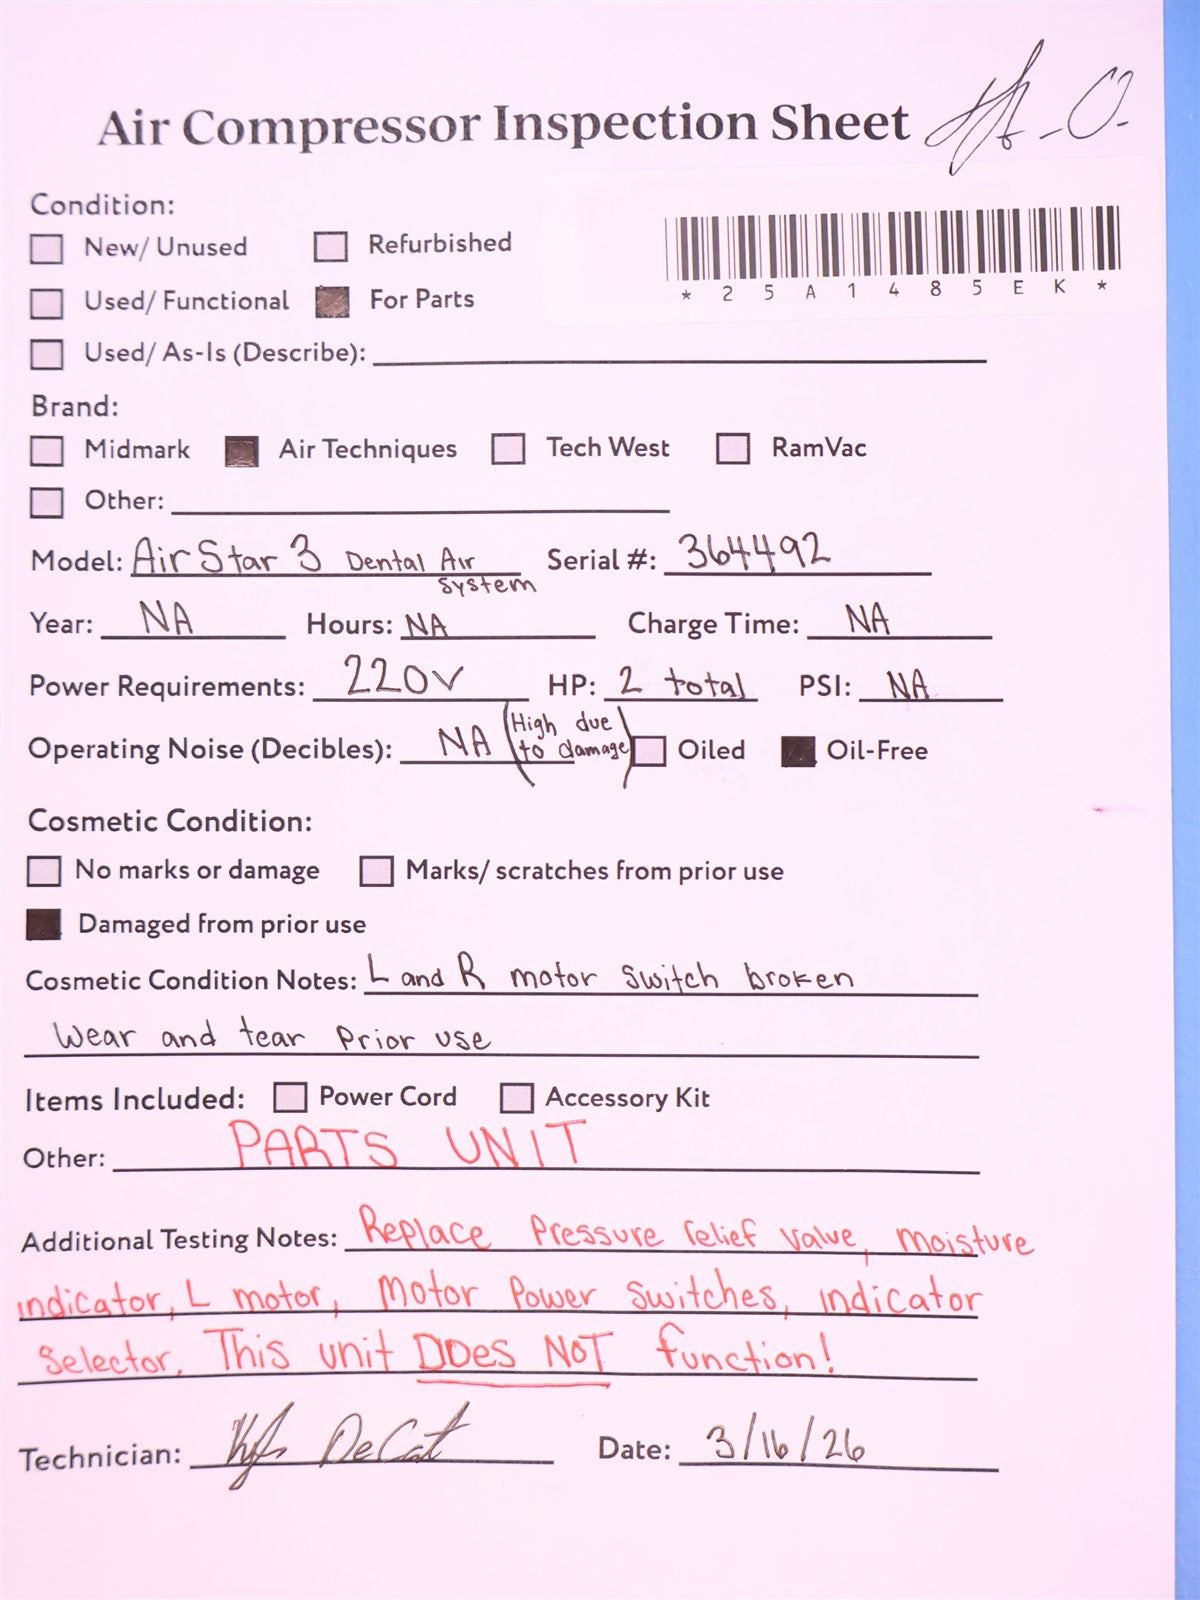 Air Compressor Inspection Sheet
Condition:
New/ Unused Refurbished
*25A1485EK*
Used/ Functional For Parts
Used/ As-Is (Describe):
Brand:
Midmark Air Techniques Tech West RamVac
Other:
Model: Air Star 3 Dental Air System Serial #: 364492
Year: NA Hours: NA Charge Time: NA
Power Requirements: 220V HP: 2 total PSI: NA
Operating Noise (Decibles): NA (High due to damage) Oiled Oil-Free
Cosmetic Condition:
No marks or damage Marks/ scratches from prior use
Damaged from prior use
Cosmetic Condition Notes: L and R motor switch broken
Wear and tear Prior use
Items Included: Power Cord Accessory Kit
Other: PARTS UNIT
Additional Testing Notes: Replace Pressure relief valve, moisture
indicator, L motor, Motor Power Switches, indicator
Selector. This unit DOes NOT function!
Technician: DeCat Date: 3/16/26